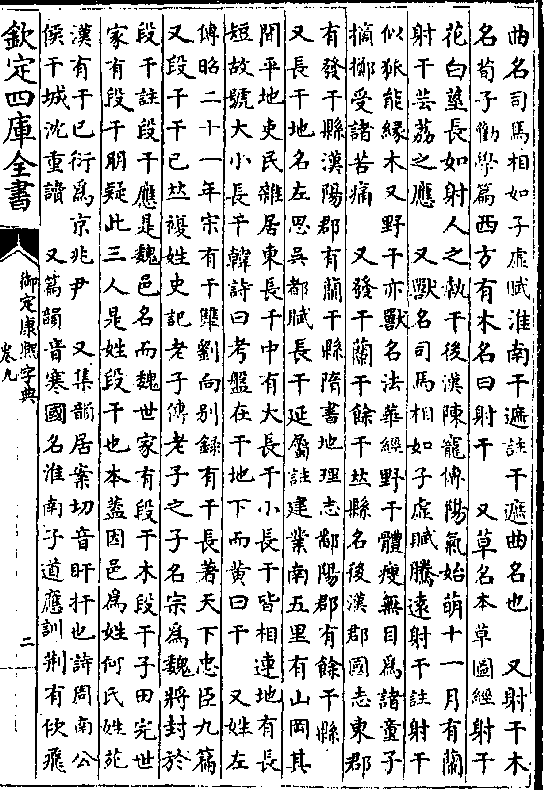 曲名司馬相如子虛賦淮南干遮註干遮曲名也　又射干木
名荀子勸學篇西方有木名曰射干　又草名本草圖經射干
花白莖長如射人之執干後漢陳寵傳陽氣始萌十一月有蘭
射干芸荔之應　又獸名司馬相如子虛賦騰遠射干註射干
似狐能緣木又野干亦獸名法華經野干體瘦無目為諸童子
擿擲受諸苦痛　又發干蘭干餘干𠀤縣名後漢郡國志東郡
有發干縣漢陽郡有蘭干縣隋書地理志鄱陽郡有餘干縣
又長干地名左思吳都賦長干延屬註建業南五里有山岡其
閒平地吏民雜居東長干中有大長干小長干皆相連地有長
短故號大小長干韓詩曰考盤在干地下而黃曰干　又姓左
傳昭二十一年宋有干犫劉向別錄有干長著天下忠臣九篇
又段干干已𠀤複姓史記老子傳老子之子名宗為魏將封於
段干註段干應是魏邑名而魏世家有段干木段干子田完世
家有段干朋疑此三人是姓段干也本蓋因邑為姓何氏姓苑
漢有干已衍為京兆尹　又集韻居案切音旰扞也詩周南公
侯干城沈重讀　又篇韻音寒國名淮南子道應訓荆有佽飛
欽定四庫全書
御定康熙字典
卷九
二